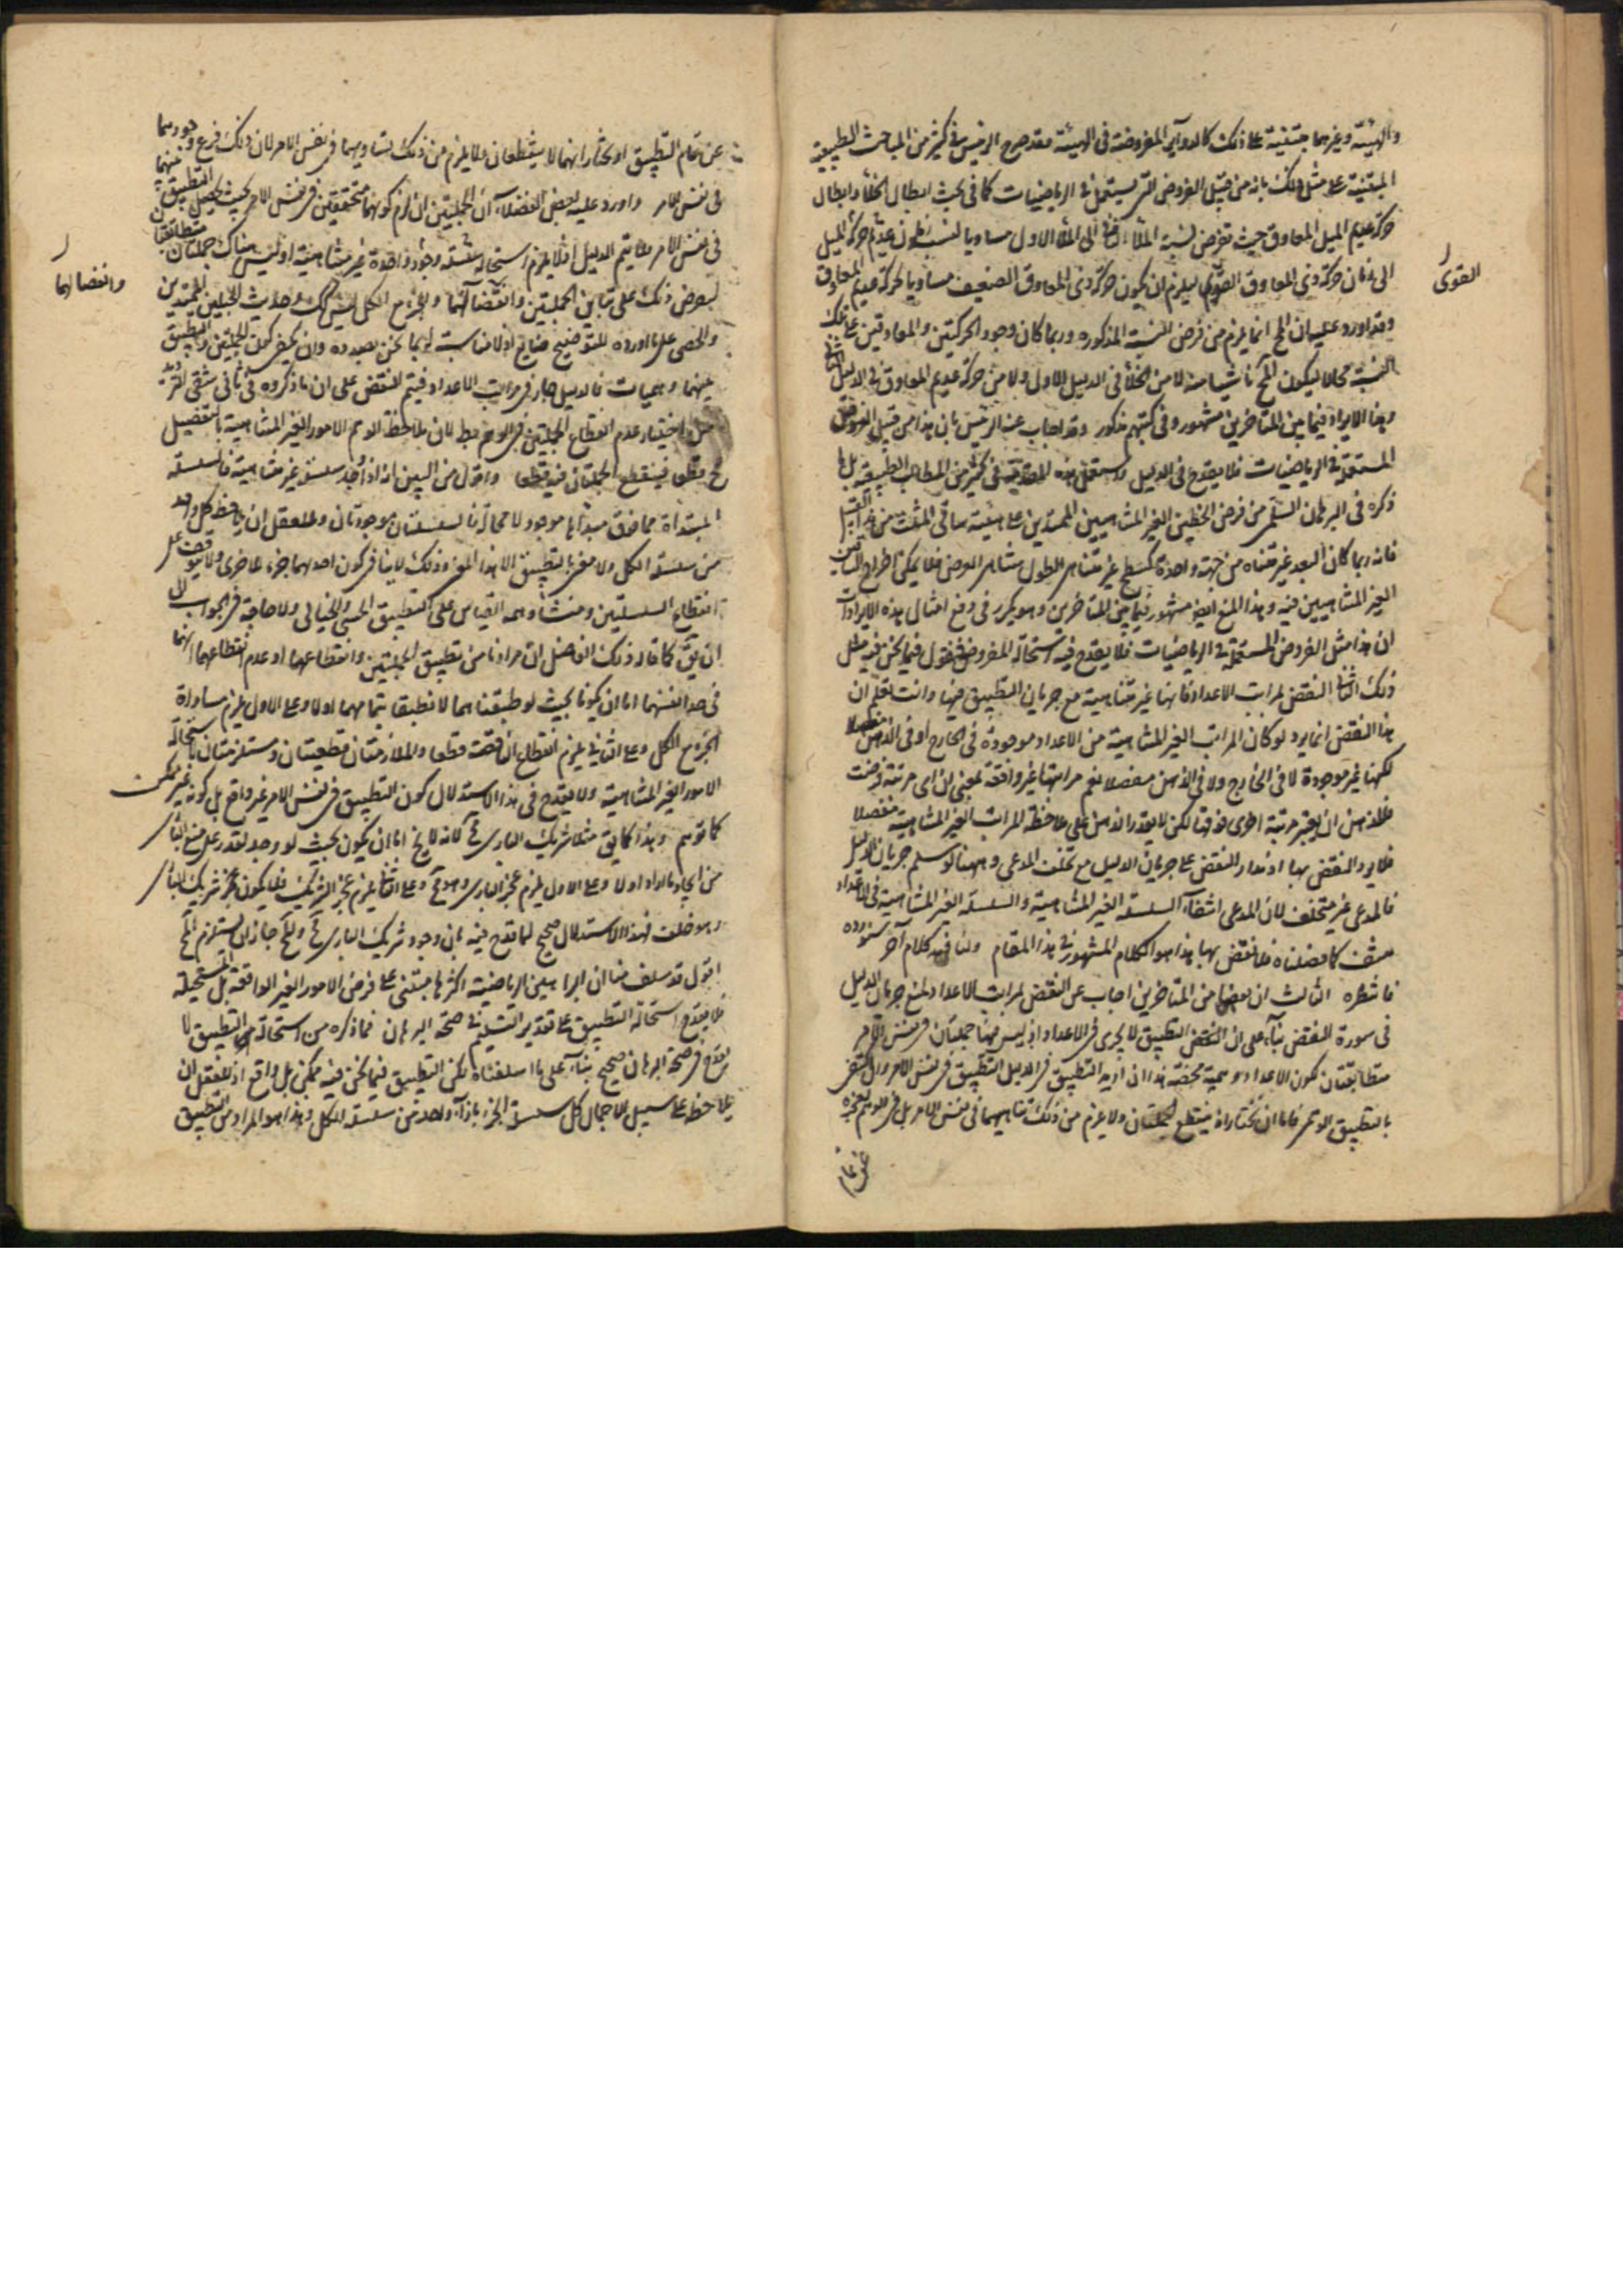 والهيئة وغيرهما مبتنية على ذلك كالدوائر المفروضة في الهيئة وقد صرح الرئيس في كثير من المباحث الطبيعية
المبتنية على مثل ذلك بانه من قبيل الفروض التي يستعمل في الرياضيات كما في بحث ابطال الخلأ وابطال
حركة عديم الميل المعاوق حيث تفرض نسبة الملأ الثاني الى الملأ الاول مساويا لنسبة زمان عديم حركة الميل
الى زمان حركة ذي المعاوق القوى ليلزم ان يكون حركة ذي المعاوق الضعيف مساويا لحركة عديم المعاوق
القوى
وقد اورد عليه ان المح انما يلزم من فرض النسبة المذكوره وربما كان وجود الحركتين والمعاوقين على تلك
النسبة محالا ليكون المح ناشيا منه لا من الخلأ في الدليل الاول ولا من حركة عديم المعاوق في الدليل الثاني
وهذا الايراد فيما بين المتاخرين مشهور وفي كتبهم مذكور وقد اجاب عنه الرئيس بان هذا من قبيل الفروض
المستعملة في الرياضيات فلا يقدح في الدليل ويستعمل هذه المقدمة في كثير من المطالب الطبيعية بل ما
ذكره في البرهان السلمي من فرض الخطين الغير المتناهيين الممتدين على هيئة ساقي المثلث من هذا القبيل
فانه ربما كان البعد غير متناه من جهة واحدة كسطح غير متناهي الطول متناهي العرض فلا يمكن اخراج الساقين
الغير المتناهيين فيه وهذا المنع ايضا مشهور فيما بين المتاخرين وهو يكرر في دفع امثال هذه الايرادات
ان هذا مثل الفروض المستعملة في الرياضيات فلا يقدح فيه استحالة المفروض فنقول فيما نحن فيه مثل
ذلك الثاني النقض لمراتب الاعداد فانها غير متناهية مع جريان التطبيق فيها وانت تعلم ان
هذا النقض انما يرد لو كان المراتب الغير المتناهية من الاعداد موجودة في الخارج او في الذهن مفصلا
لكنها غير موجودة لا في الخارج ولا في الذهن مفصلا نعم مراتبها غير واقفة بمعنى ان اى مرتبة فرضت
فللذهن ان يعتبر مرتبة اخرى فوقها لكن لا يقدر الذهن على ملاحظة المراتب الغير المتناهية مفصلا
فلا يرد النقض بها اذ مدار النقض على جريان الدليل مع تخلف المدعى وههنا لو سلم جريان الدليل
فالمدعى غير متخلف لان المدعى انتفاء السلسلة الغير المتناهية والسلسلة الغير المتناهية في الاعداد
منتف كما فصلناه فلا نقض بها هذا هو الكلام المشهور في هذا المقام ولنا فيه كلام آخر سنورده
فانتظره الثالث ان بعضا من المتاخرين اجاب عن النقض لمراتب الاعداد بمنع جريان الدليل
في صورة النقض بناء على ان التطبيق لا يجرى في الاعداد اذ ليس فيها جملتان في نفس الامر
متطابقتان لكون الاعداد وهمية محضة هذا ان اريد التطبيق في الدليل التطبيق في نفس الامر وان اكتفى
بالتطبيق الوهمي فاما ان نختار انه ينقطع الجملتان ولا يلزم من ذلك تناهيهما في نفس الامر بل في الوهم لعجزه
عن تمام التطبيق او نختار انهما لا ينقطعان ولا يلزم من ذلك تساويهما في نفس الامر لان ذلك فرع وجودهما
في نفس الامر واورد عليه بعض الفضلاء ان الجملتين ان لزم كونهما متحققتين في نفس الامر بحيث يحصل التطبيق بينهما
في نفس الامر فلا يتم الدليل اذ لا يلزم استحالة سلسلة واحدة غير متناهية اذ ليس هناك جملتان متطابقتان
لفرض ذلك على تباين الجملتين وانفصالهما والجزء مع الكل ليس كذلك وحديث الحبلين الممتدين
وانفصالهما
والحصى على ما اورده للتوضيح ضايع اذ لا مناسبة له بما نحن بصدده وان كفى كون الجملتين والتطبيق
بينهما وهميات فالدليل جار في مراتب الاعداد فيتم النقض على ان ما ذكروه في ثاني شقى الترديد
من اختيار عدم انقطاع الجملتين في الوهم بط لان ملاحظة الوهم الامور الغير المتناهية بالتفصيل
مح قطعا فينقطع الجملتان فيه قطعا واقول من البين انه اذا وجد سلسلة غير متناهية فالسلسلة
المبتدأة مما فوق مبدأها موجود لا محالة فالسلسلتان موجودتان وللعقل ان يلاحظ كل واحد
من سلسلة الكل ولا معنى بالتطبيق الا هذا المعنى وذلك لا ينافي كون احدهما جزء للاخرى ولا يتوقف على
انقطاع السلسلتين ومنشأ وهمه القياس على التطبيق الحسي والخيالي ولا حاجة في الجواب الى
ان يق كما قاله ذلك الفاضل ان مرادنا من تطبيق الجملتين وانقطاعهما او عدم انقطاعهما انهما
في حد انفسهما اما ان يكونا بحيث لو طبقناهما لانطبقا بتمامهما او لا وعلى الاول يلزم مساواة
الجزء مع الكل وعلى الثاني يلزم انقطاع الناقصة قطعا والملازمتان قطعيتان ومستلزمتان باستحالة
الامور الغير المتناهية ولا يقدح في هذا الاستدلال كون التطبيق في نفس الامر غير واقع بل كونه غير ممكن
كما توهم وهذا كما يق مثلا شريك البارى مح لانه لا يخ اما ان يكون بحيث لو وجد لقدر على منع البارى
من ايجاد ما اراد او لا وعلى الاول يلزم عجز البارى وهو مح وعلى الثاني يلزم عجز الشريك فلا يكون شريك البارى
وهو خلف فهذا الاستدلال صحيح لا يقدح فيه بان وجود شريك البارى مح والمح جاز ان يستلزم المح
اقول قد سلف منا ان البراهين الرياضية اكثرها مبتنى على فرض الامور الغير الواقعة بل المستحيلة
فلا يقدح استحالة التطبيق على تقدير التسليم في صحة البرهان فما ذكره من استحالة التطبيق لا
يقدح في صحة البرهان صحيح بناء على ما اسلفناه لكن التطبيق فيما نحن فيه ممكن بل واقع اذ للعقل ان
يلاحظ على سبيل الاجمال كل سلسلة الجزء بازاء واحد من سلسلة الكل وهذا هو المراد من التطبيق